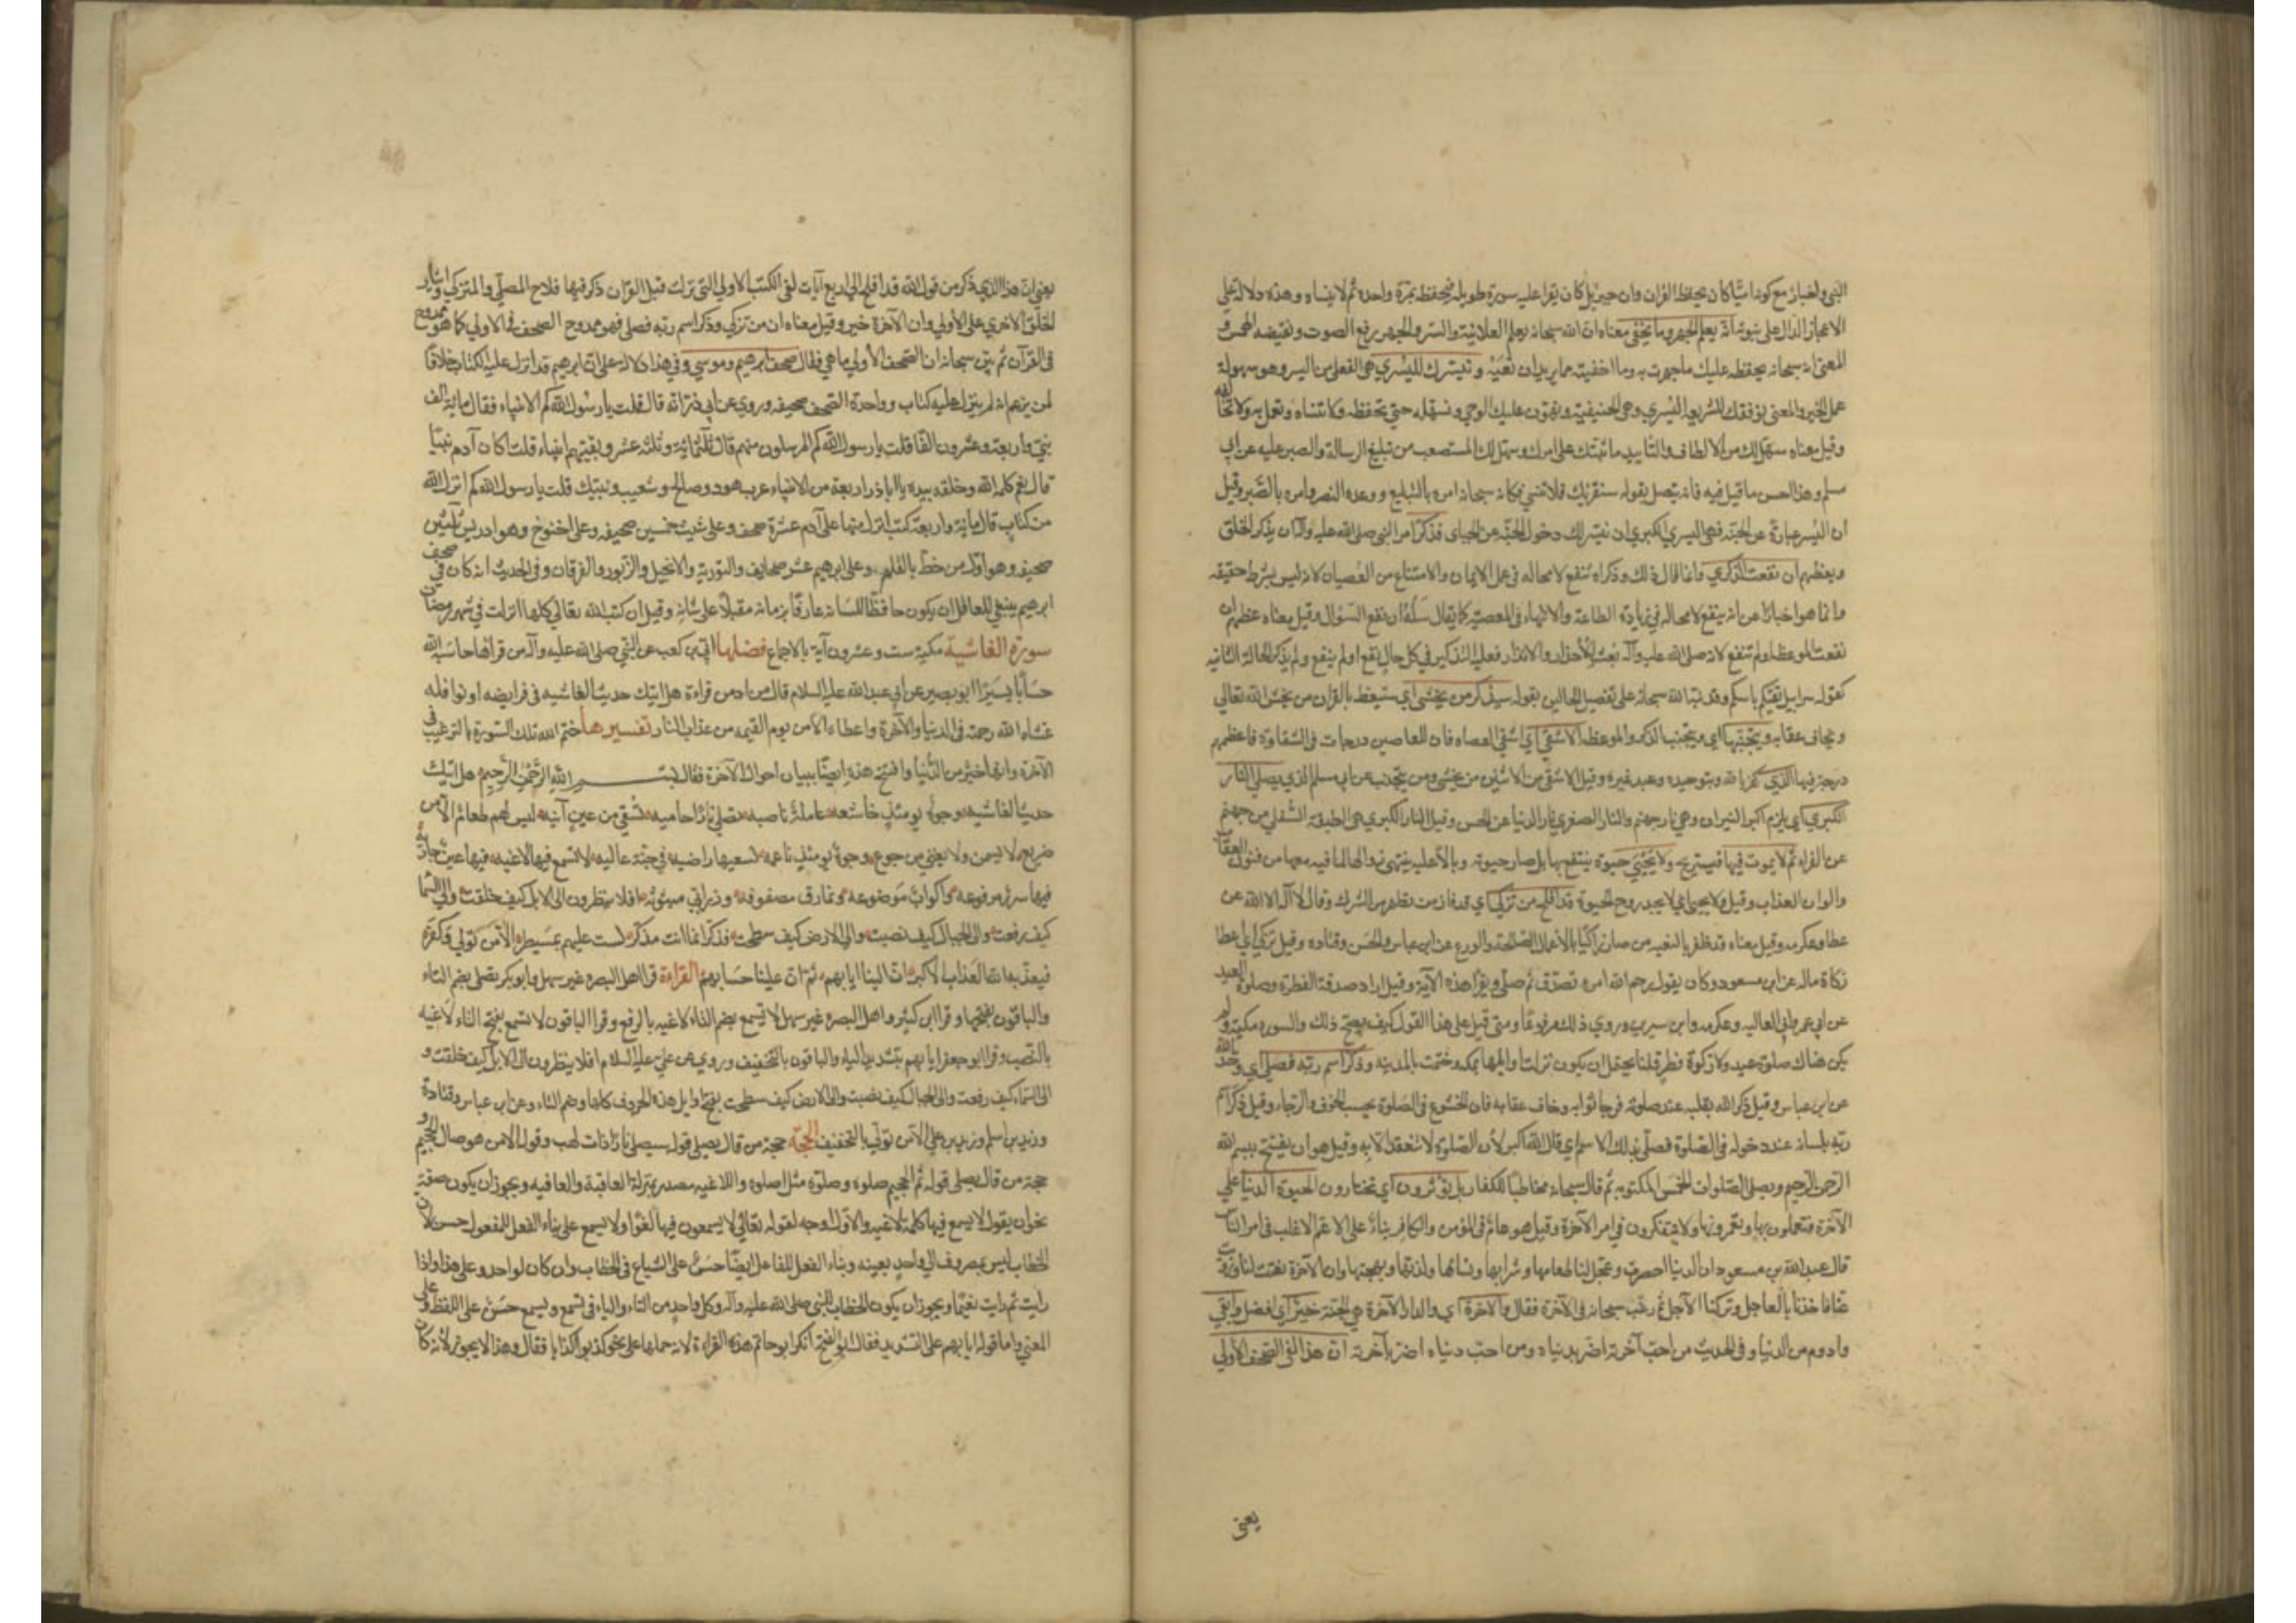 النبي والخبار مع كونه اميّا كان يحفظ القران وان جبرئيل كان يقرا عليه سورة طويله فيحفظه بمرّة واحدة ثم لا ينساه وهذه دلاله علي
الاعجاز الدال على نبوته انه يعلم الجهر وما يخفى معناه ان الله سبحانه يعلم العلانية والسّر والجهر رفع الصوت ونقيضه الهمس و
المعنى انه سبحانه يحفظه عليك ما جهرت به وما اخفيته مما يريد ان تعيه و نيسّرك لليُسري هي الفعلى من اليسر وهو سهولة
عمل الخير والمعنى نوفقك للشريعة اليُسري وهي الحنيفيّة ونهوّن عليك الوحي ونسهّله حتى تحفظه ولا تنساه وتعمل به ولا تخالفه
وقيل معناه سنسهل لك من الالطاف والتأييد ما يثبتك على امرك ويسهل لك المستصعب من تبليغ الرسالة والصبر عليه عن ابي
مسلم وهذا احسن ما قيل فيه فانه يتصل بقوله سنقرئك فلا تنسى فكانه سبحانه امره بالتبليغ ووعده النصر وامره بالصّبر وقيل
ان اليُسر عبارة عن الجنّة فهي اليسري الكبري اي نيسّر لك دخول الجنّة عن الجبّاي فذكّر امر النبي صلى الله عليه واله ان يذكر الخلق
ويعظهم ان نفعت الذكري وانما قال ذلك وذكراه تنفع لا محاله في عمل الايمان والامتناع من العصيان لانه ليس بشرط حقيقه
وانما هو اخبار عن انه ينفع لا محاله في زيادة الطاعة والانتهاء في المعصيّة كما يقال سَله ان نفع السّوال وقيل معناه عظهم ان
نفعت الموعظة او لم تنفع لانه صلى الله عليه وآله بُعث للاعذار والانذار فعليه التذكير في كل حال نفع او لم ينفع ولم يذكر الحالة الثانيه
كقوله سرابيل تقيكم باسكم وقد نبّه الله سبحانه على تفصيل الحالين بقوله سيذّكر من يخشى اي سيتعظ بالقران من يخشى الله تعالى
ويخاف عقابه ويتجنّبها اي ويتجنب الذكر والموعظة الاشقى اي اشقى العصاه فان للعاصين درجات في الشقاوة فاعظمهم
درجة فيها الذي كفر بالله وبتوحيده وعبد غيره وقيل الاشقى من الاثنين من يخشى ومن يتجنب عن ابي مسلم الذي يصلى النار
الكبري اي يلزم اكبر النيران وهي نار جهنم والنار الصغري نار الدنيا عن الحسن وقيل النار الكبري هي الطبقة السّفلي من جهنم
عن الفراء ثم لا يموت فيها فيستريح ولا يحيى حيوة ينتفع بها بل صار حيوته وبالا عليه يتمنى زوالها لما فيه معها من فنون العقاب
والوان العذاب وقيل ولا يحيى اي لا يجد روح الحيوة قد افلح من تزكّى اي قد فاز من تطهر من الشرك وقال لا اله الا الله عن
عطا وعكرمه وقيل معناه قد ظفر بالبغيه من صار زاكيا بالاعمال الصّالحة والورع عن ابن عباس والحسن وقتاده وقيل تزكّى اي اعطا
زكاة ماله عن ابن مسعود وكان يقول رحم الله امره تصدّق ثم صلى ويقرا هذه الآية وقيل اراد صدقة الفطرة وصلوة العيد
عن ابي عمر وابي العاليه وعكرمه وابن سيرين وروي ذلك مرفوعًا ومتى قيل على هذا القول كيف يصحّ ذلك والسوره مكية ولم
يكن هناك صلوة عيد ولا زكوة فطر قلنا يحتمل ان يكون نزلت اوايلها بمكه وختمت بالمدينه وذكر اسم ربّه فصلى اي وحد الله
عن ابن عباس وقيل ذكر الله بقلبه عند صلوته فرجا ثوابه وخاف عقابه فان الخشوع في الصّلوة بحسب الخوف والرجاء وقيل ذكر اسم
ربّه بلسانه عند دخوله في الصّلوة فصلّى بذلك الاسم اي قال الله اكبر لان الصّلوة لا تنعقد الّا به وقيل هو ان يفتتح ببسم الله
الرّحمن الرّحيم ويصلى الصّلوات الخمس المكتوبه ثم قال سبحانه مخاطبًا للكفار بل تؤثرون اي تختارون الحيوة الدنيا على
الآخرة فتعملون بها وتعمرونها ولا تتفكرون في امر الآخرة وقيل هو عامّ في المؤمن والكافر بناءً على الاعمّ الاغلب في امر النّاس
قال عبد الله بن مسعود ان الدنيا احضرت وعجّل لنا طعامها وشرابها ونسائها ولذّتها وبهجتها وان الآخرة نعتت لنا وزويت
عنّا فاخذنا بالعاجل وتركنا الآجل ثم رغّب سبحانه في الآخرة فقال والآخرة اي والدار الآخرة هي الجنّة خيرٌ اي افضل وابقى
وادوم من الدنيا وفي الحديث من احبّ آخرته اضرّ بدنياه ومن احبّ دنياه اضرّ بآخرته انّ هذا لفي الصّحف الأولى
يعنى
يعنى انّ هذا الذي ذكر من قول الله قد افلح الى اربع آيات لفي الكتب الاولى التى نزلت قبل القرآن ذكر فيها فلاح المصلّي والمتزكي وايثار
الخلق الاخري على الأولي وان الآخرة خير وقيل معناه ان من تزكى وذكر اسم ربّه فصلى فهو ممدوح في الصّحف الاولي كما هو ممدوح
في القرآن ثم بيّن سبحانه ان الصّحف الأولى ما هي فقال صحف ابرهيم وموسى وفي هذا دلاله على ان ابرهيم قد انزل عليه الكتاب خلافًا
لمن يزعم انه لم ينزل عليه كتاب وواحدة الصّحف صحيفه وروي عن ابي ذرّ انه قال قلت يا رسول الله كم الانبياء فقال مائة الف
نبيّ واربعة وعشرون الفًا قلت يا رسول الله كم المرسلون منهم قال ثلثمائة وثلثة عشر وبقيتهم انبياء قلت كان آدم نبيّا
قال نعم كلمه الله وخلقه بيده يا اباذر اربعة من الانبياء عرب هود وصالح وشعيب ونبيّك قلت يا رسول الله كم انزل الله
من كتاب قال مائة واربعة كتب انزل منها على آدم عشرة صحف وعلى شيث خمسين صحيفه وعلى اخنوخ وهو ادريس ثلثين
صحيفه وهو اوّل من خطّ بالقلم وعلى ابرهيم عشر صحايف والتورية والانجيل والزّبور والفرقان وفي الحديث انه كان في صحف
ابرهيم ينبغي للعاقل ان يكون حافظًا للسانه عارفًا بزمانه مقبلًا على شانه وقيل ان كتب الله تعالى كلها انزلت في شهر رمضان
سورة الغاشية مكية ست وعشرون آية بالاجماع فضلها ابيّ بن كعب عن النّبي صلى الله عليه وآله من قراها حاسبه الله
حسابًا يسيرًا ابو بصير عن ابي عبد الله عليه السلام قال من ادمن قراءة هل اتيك حديث الغاشيه في فرايضه او نوافله
غشاه الله رحمته في الدنيا والآخرة واعطاه الامن يوم القيمه من عذاب النار تفسيرها ختم الله تلك السّورة بالترغيب في
الآخرة وانها خير من الدّنيا وافتتح هذه ايضًا ببيان احوال الآخرة فقال بسم الله الرّحمن الرّحيم هل اتيك
حديث الغاشيه وجوهٌ يومئذٍ خاشعه عاملةٌ ناصبه تصلى نارًا حاميه تُسقى من عينٍ آنيه ليس لهم طعامٌ الّا من
ضريع لا يسمن ولا يغنى من جوع وجوهٌ يومئذٍ ناعمه لسعيها راضيه في جنّة عاليه لا تسمع فيها لاغيه فيها عينٌ جاريةٌ
فيها سررٌ مرفوعه واكوابٌ مَوضوعه ونمارق مصفوفه وزرابي مبثوثه افلا ينظرون الى الابل كيف خلقت والى السّما
كيف رفعت والى الجبال كيف نصبت والى الارض كيف سطحت فذكّر انما انت مذكّر لست عليهم بمسيطر الّا من تولى وكفر
فيعذّبه الله العَذاب الأكبر انّ الينا ايابهم ثمّ انّ علينا حسَابهم القراءة قرا اهل البصره غير سهل وابو بكر تصلى بضم التاء
والباقون بفتحها وقرا ابن كثير واهل البصره غير سهل لا يسمع بضم الياء لاغيه بالرفع وقرا الباقون لا تسمع بفتح التاء لاغيه
بالنّصب وقرا ابو جعفر ايّابهم بتشديد الياء والباقون بالتخفيف وروي عن علي عليه السلام افلا ينظرون الى الابل كيف خلقت و
الى السّماء كيف رفعت والى الجبال كيف نصبت والى الارض كيف سطحت بفتح اوايل هذه الحروف كلها وضم التاء وعن ابن عباس وقتادة
وزيد بن اسلم وزيد بن علي الّا من تولّى بالتخفيف الحجّة حجة من قال يصلى قوله سيصلى نارًا ذات لهب وقوله الا من هو صال الجحيم و
حجة من قال يصلى قوله ثم الجحيم صلوه وصلوته مثل اصلوه واللاغيه مصدر بمنزلة العاقبة والعافيه ويجوز ان يكون صفةٍ
نحو ان يقول لا يسمع فيها كلمة لاغيه والاوّل اوجه لقوله تعالى لا يسمعون فيها لغوًا ولا يسمع على بناء الفعل للمفعول حسن لان
الخطاب ليس بمصروف الى واحدٍ بعينه وبناء الفعل للفاعل ايضًا حسنٌ على الشياع في الخطاب وان كان لواحد وعلى هذا واذا
رايت ثم رايت نعيمًا ويجوز ان يكون الخطاب للنّبي صلى الله عليه وآله وكل واحدٍ من التاء والياء في تسمع ويسمع حسَنٌ على اللفظ وعلى
المعنى واما قوله ايابهم على التشديد فقال ابو الفتح انكر ابو حاتم هذه القراءة لانه حملها على نحو كذبوا كذابا فقال وهذا لا يجوز لأنه كان